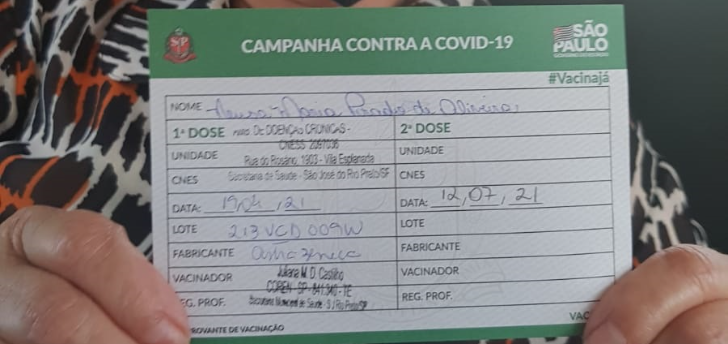 SP
CAMPANHA CONTRA A COVID-19
SÃO
PAULO
#Vacinajá
NOME Neusa Maria de Oliveira
1ª DOSE DE DOENÇAS CRONICAS -
CNES 2097036
UNIDADE
Rua do Rosário, 1903 - Vila Esplanada
CNES Secretaria de Saúde - São José do Rio Preto/SP
DATA: 19,04,21
LOTE 213VCD009W
FABRICANTE
VACINADOR Juliana M. D. Castilho
COREN - SP
REG. PROF. Municipal de Saúde - S J Rio Preto/SP
2ª DOSE
UNIDADE
CNES
DATA: 12,07,21
LOTE
FABRICANTE
VACINADOR
REG. PROF.
ROVANTE DE VACINAÇÃO
VAC